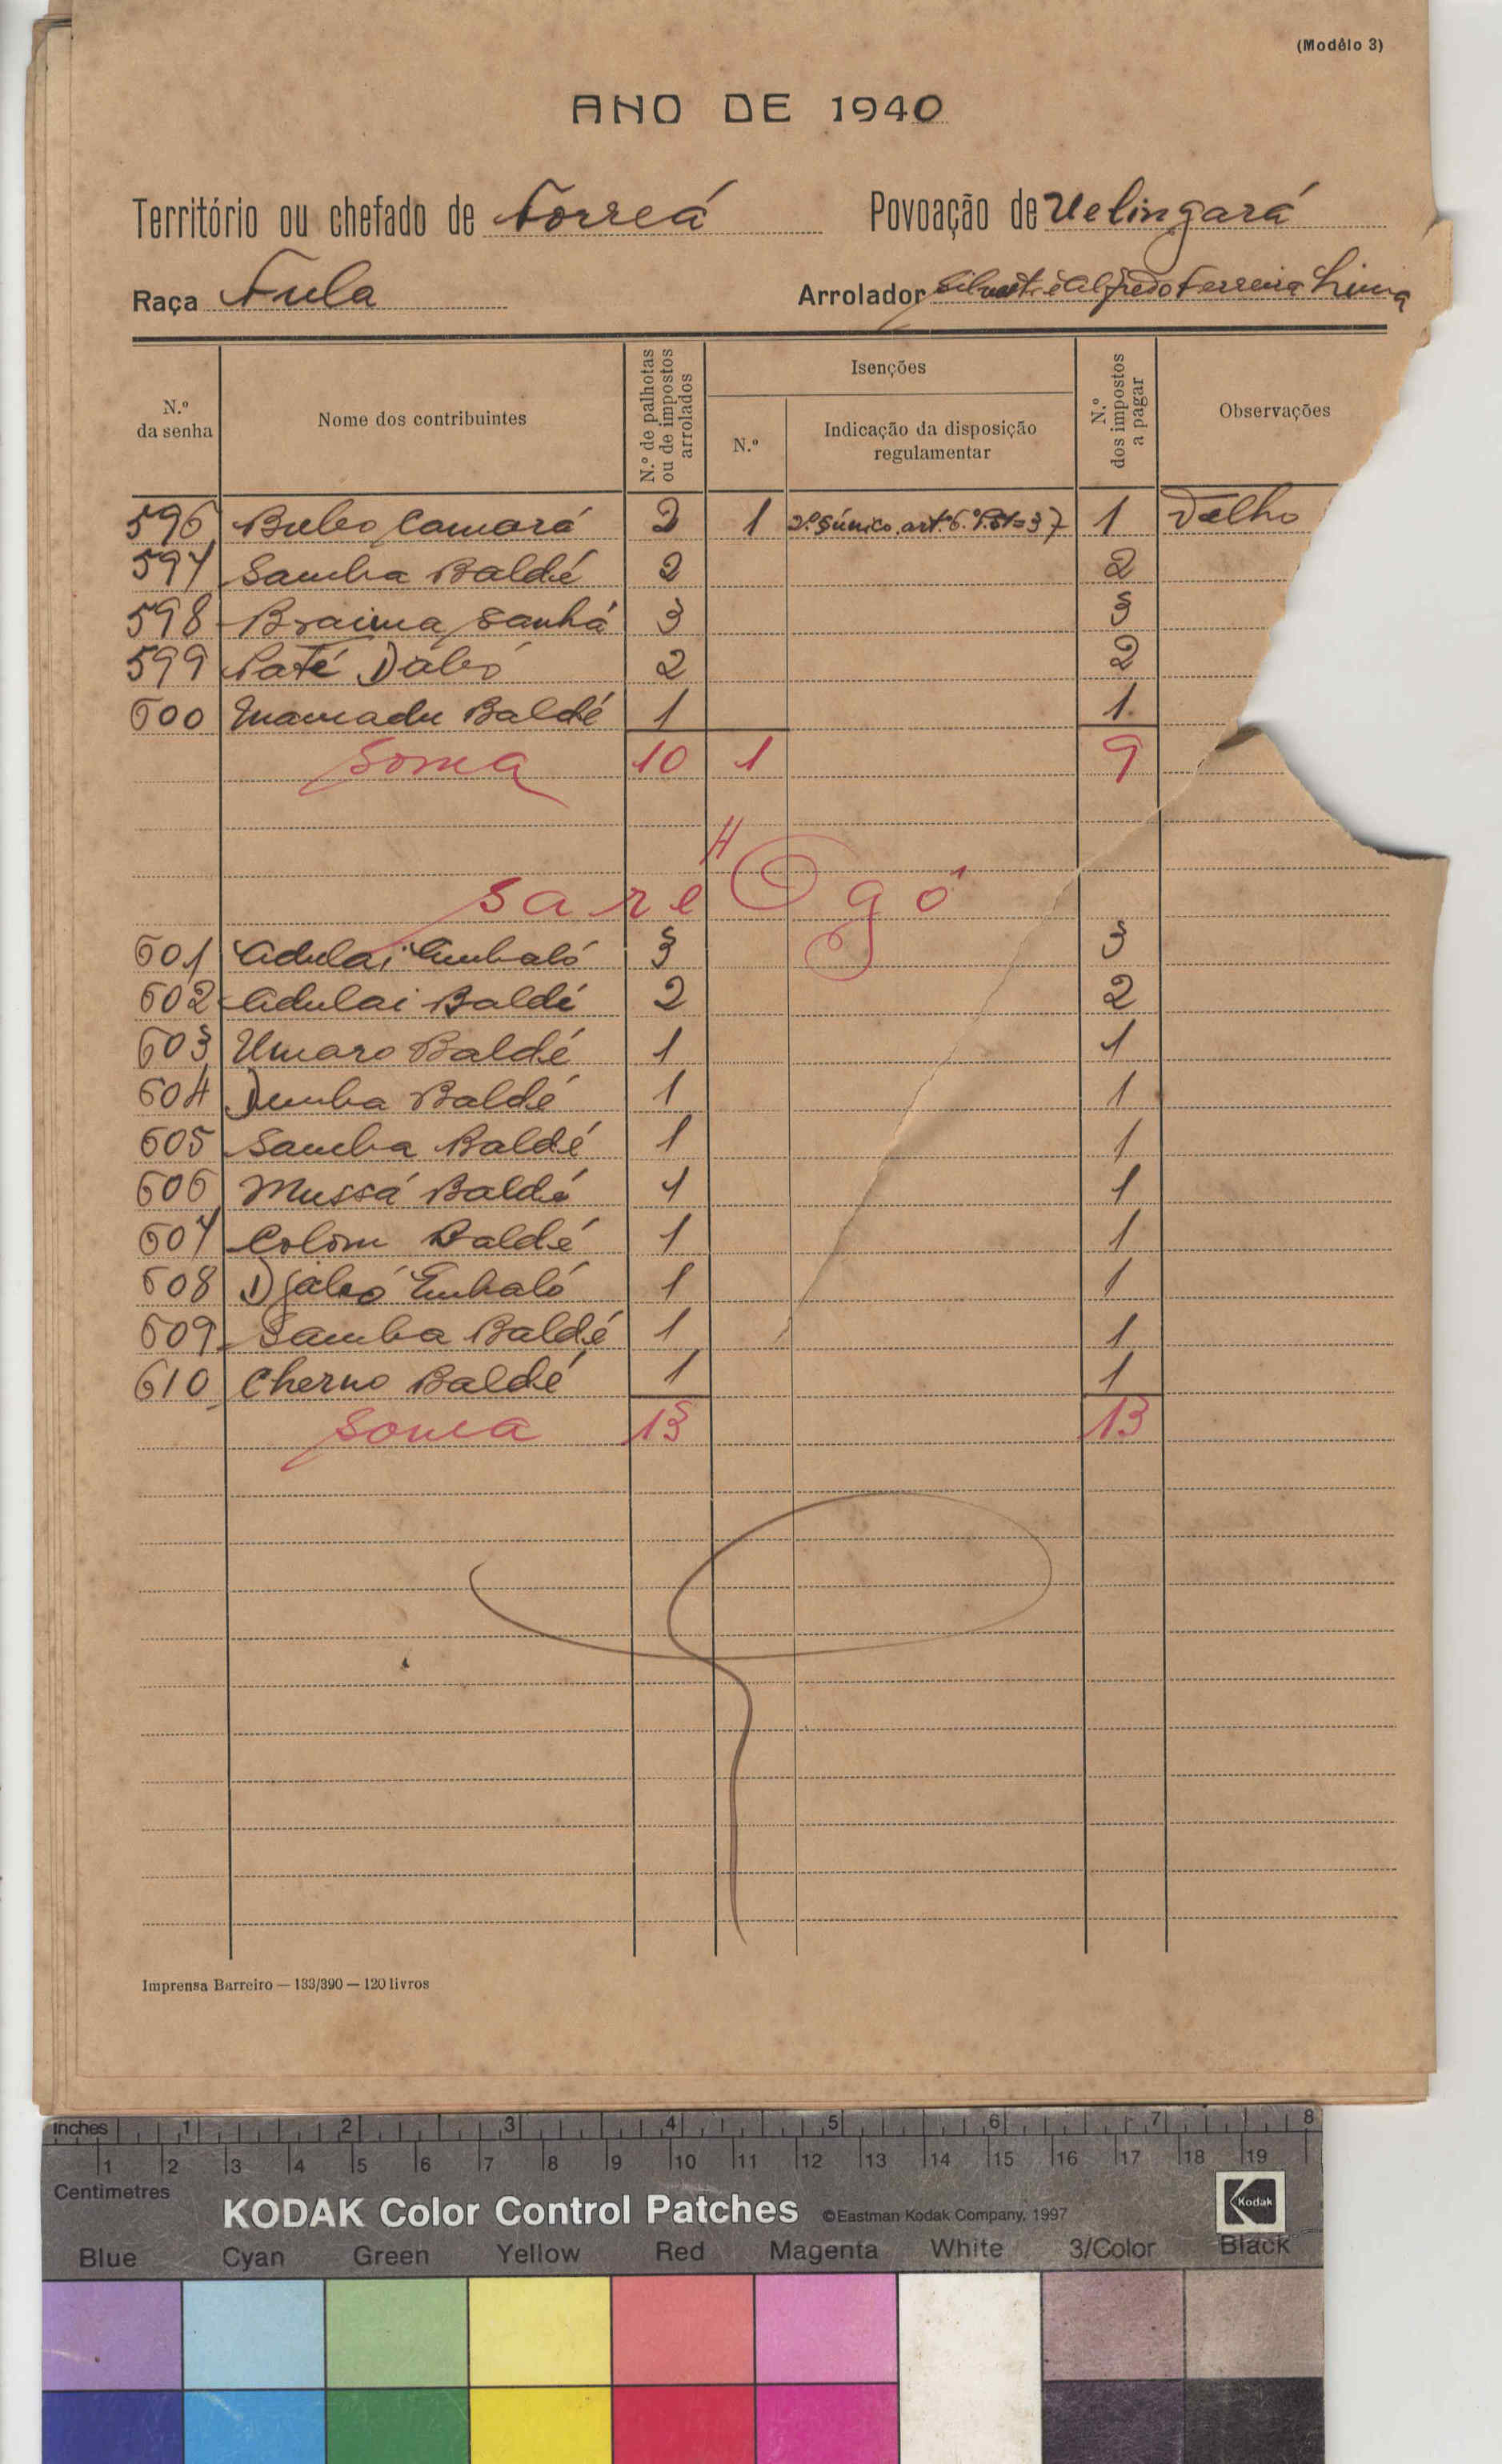 (Modêlo 3)
ANO DE 1940
Território ou chefado de Forreá Povoação de Uelingará
Raça Fula Arrolador Silvestre Alfredo Ferreira Lima
N.º da senha
Nome dos contribuintes
N.º de palhotas ou de impostos arrolados
Isenções
N.º
Indicação da disposição regulamentar
N.º dos impostos a pagar
Observações
596 Bubo Camará 2 1 1 Velho
597 Samba Baldé 2 2
598 Braima Sanhá 3 3
599 Paté Dabó 2 2
600 Mamadu Baldé 1 1
Soma 10 1 9
Saré Ogó
601 Adulai Embaló 3 3
602 Adulai Baldé 2 2
603 Umaro Baldé 1 1
604 Demba Baldé 1 1
605 Samba Baldé 1 1
606 Mussá Baldé 1 1
607 Colom Baldé 1 1
608 Djabó Embaló 1 1
609 Samba Baldé 1 1
610 Cherno Baldé 1 1
Soma 13 13
Imprensa Barreiro — 133/390 — 120 livros
Inches 1 2 3 4 5 6 7 8
1 2 3 4 5 6 7 8 9 10 11 12 13 14 15 16 17 18 19
Centimetres
KODAK Color Control Patches ©Eastman Kodak Company, 1997 Kodak
Blue Cyan Green Yellow Red Magenta White 3/Color Black